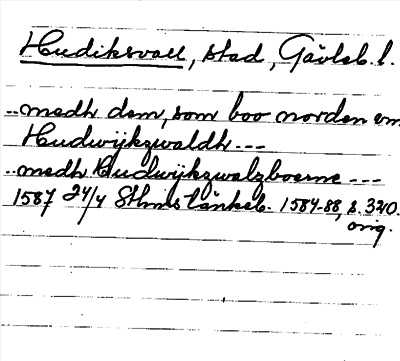 Hudiksvall, stad, Gävleb. l.
..medh dem, som boo norden om
Hudwijkzwaldh ---
..medh Hudwijkzwalzboerne ---
1587 24/4 Sthms tänkeb. 1584-88, s. 320.
orig.